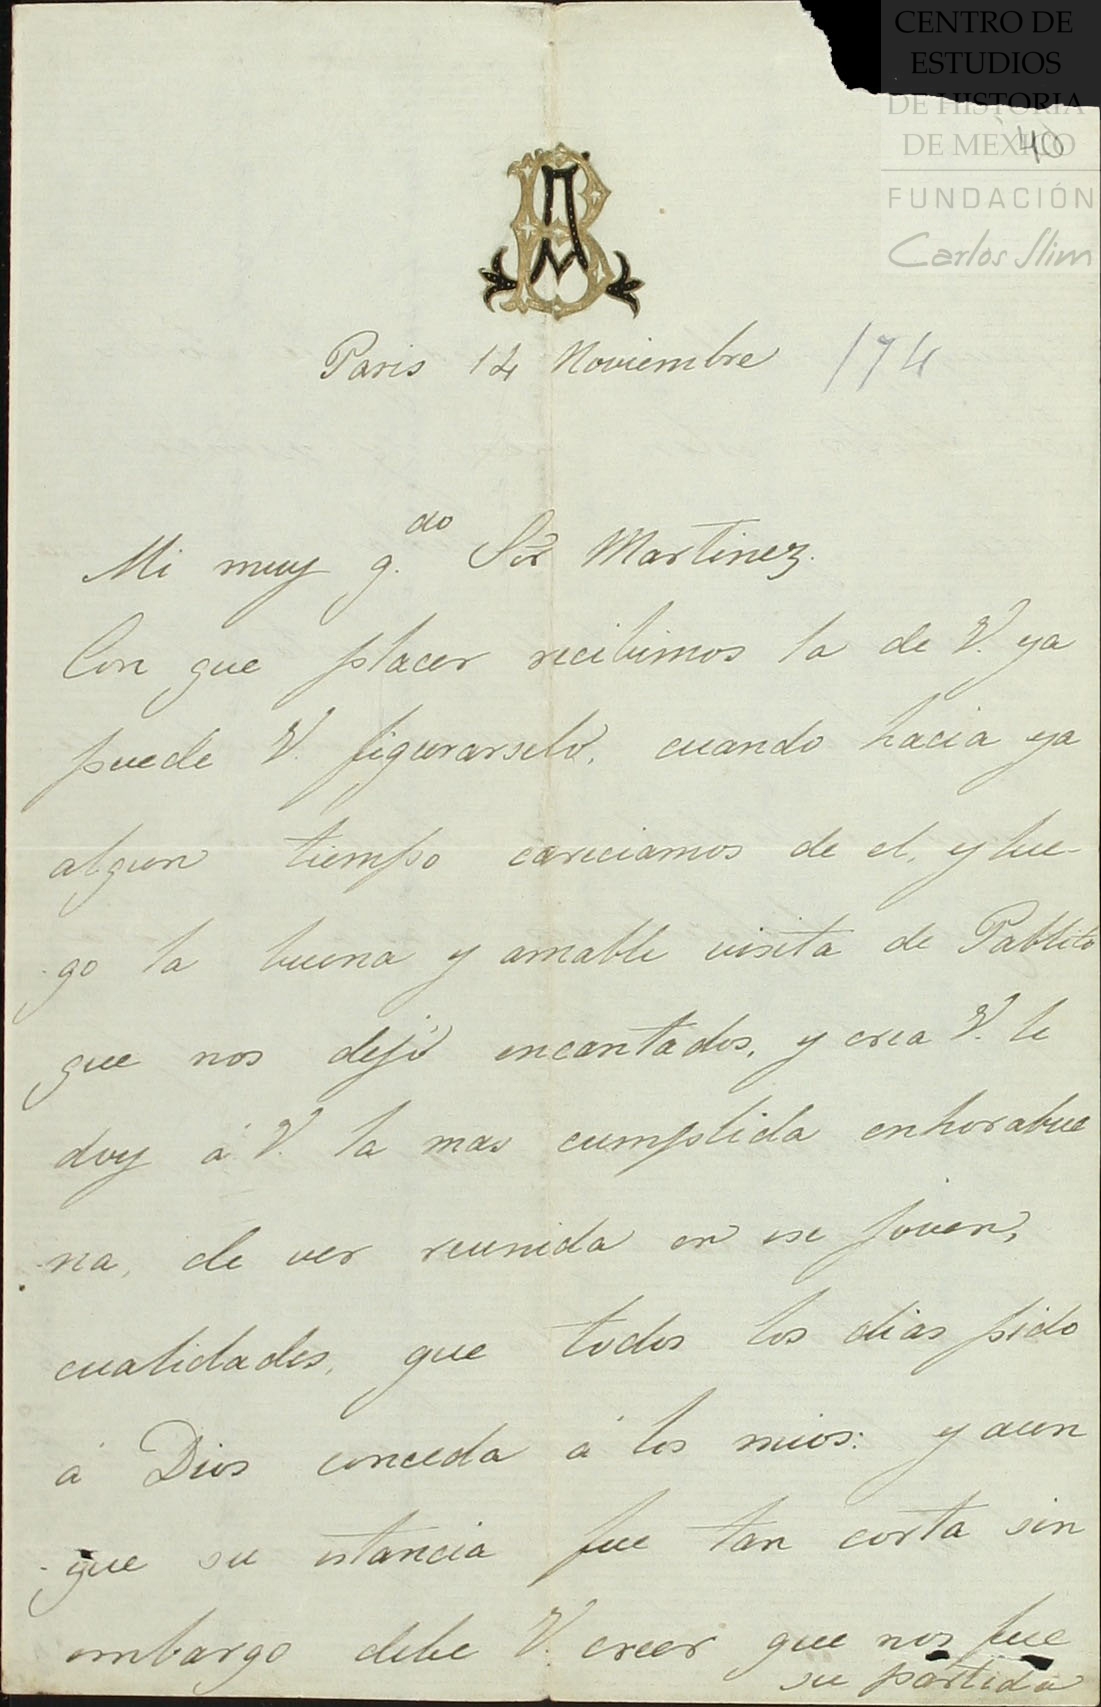 CENTRO DE
ESTUDIOS
DE HISTORIA
DE MEXICO
40
FUNDACIÓN
Carlos Slim
AB
Paris 14 Noviembre 174
Mi muy q.do Sor Martinez.
Con que placer recibimos la de V. ya
puede V. figurarselo, cuando hacia ya
algun tiempo careciamos de el, y lue-
-go la buena y amable visita de Pablito
que nos dejó encantados, y crea V. le
doy á V. la mas cumplida enhorabue
-na, de ver reunida en ese joven,
cualidades, que todos los dias pido
á Dios conceda á los mios: y aun
-que su estancia fue tan corta sin
embargo debe V. creer que nos fue
su partida